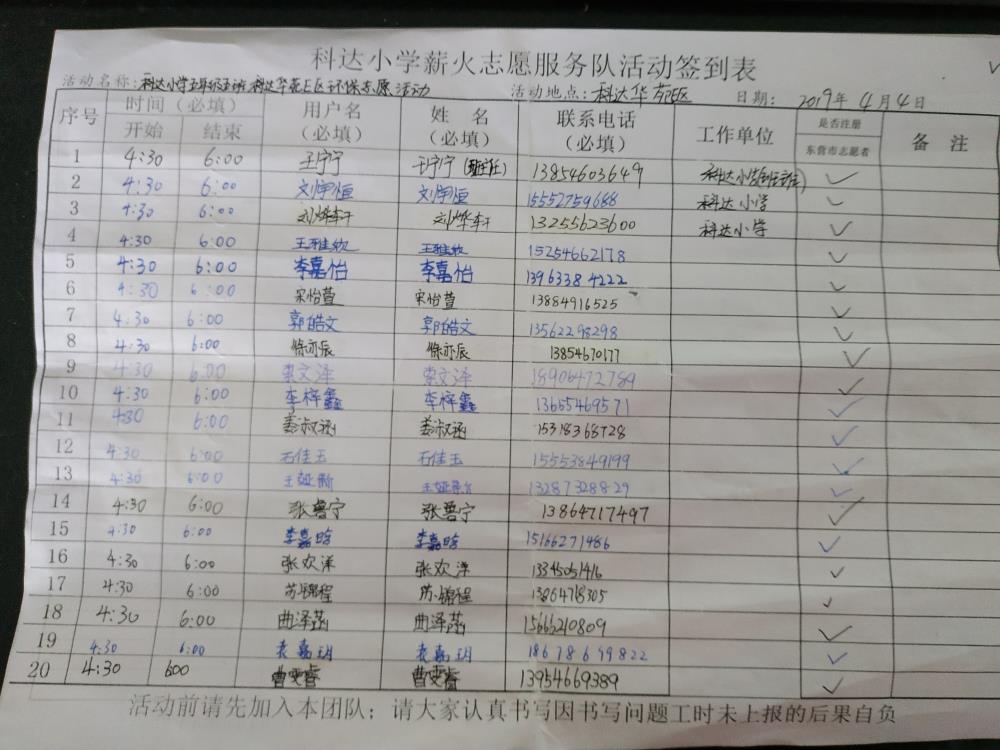 科达小学薪火志愿服务队活动签到表
活动名称：科达小学五年级五班科达华苑E区环保志愿活动 活动地点：科达华苑E区 日期： 2019年4月4日
序号 时间（必填） 用户名（必填） 姓 名（必填） 联系电话（必填） 工作单位 是否注册东营市志愿者 备 注
开始 结束
1 4:30 6:00 于宁宁 于宁宁（班主任） 13854603649 科达小学 ✓
2 4:30 6:00 刘宇恒 刘宇恒 15552759688 科达小学 ✓
3 4:30 6:00 刘烨轩 刘烨轩 13255623600 科达小学 ✓
4 4:30 6:00 王雅欣 王雅欣 15254662178 ✓
5 4:30 6:00 李嘉怡 李嘉怡 13963384222 ✓
6 4:30 6:00 宋怡萱 宋怡萱 13884916525 ✓
7 4:30 6:00 郭皓文 郭皓文 13562298298 ✓
8 4:30 6:00 徐亦辰 徐亦辰 13854670177 ✓
9 4:30 6:00 索文泽 索文泽 18906472789 ✓
10 4:30 6:00 李梓鑫 李梓鑫 13655469571 ✓
11 4:30 6:00 姜淑涵 姜淑涵 15318368728 ✓
12 4:30 6:00 石佳玉 石佳玉 15553849199 ✓
13 4:30 6:00 13287328829 ✓
14 4:30 6:00 张鲁宁 张鲁宁 13864717497 ✓
15 4:30 6:00 李嘉晗 李嘉晗 15166271486 ✓
16 4:30 6:00 张欢洋 张欢洋 13345051416 ✓
17 4:30 6:00 苏锦程 苏锦程 13864718305 ✓
18 4:30 6:00 曲泽菡 曲泽菡 15665210809 ✓
19 4:30 6:00 袁嘉玥 袁嘉玥 18678699822 ✓
20 4:30 600 曹雯睿 曹雯睿 13954669389 ✓
活动前请先加入本团队；请大家认真书写因书写问题工时未上报的后果自负